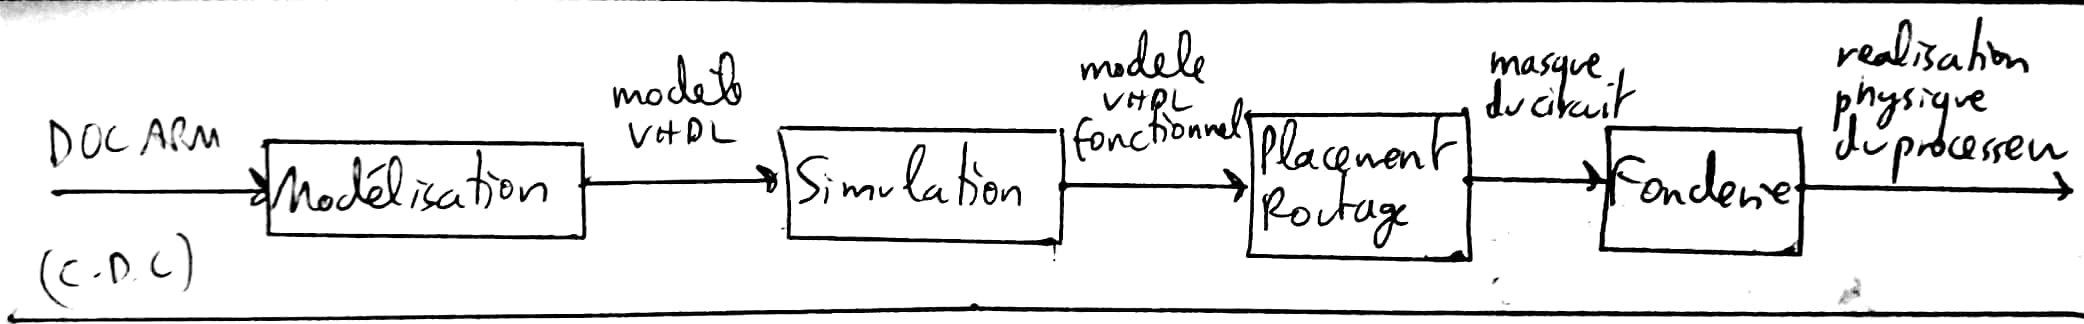 DOC ARM
(C.D.C)
Modélisation
modele
VHDL
Simulation
modele
VHDL
fonctionnel
Placement
Routage
masque
du circuit
Fonderie
realisation
physique
du processeu